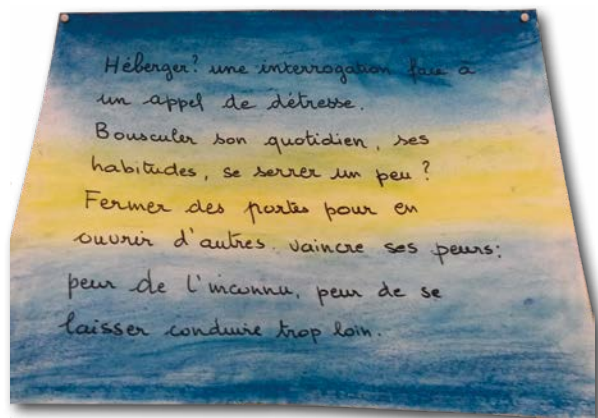 Héberger? une interrogation face à
un appel de détresse.
Bousculer son quotidien, ses
habitudes, se serrer un peu?
Fermer des portes pour en
ouvrir d'autres. vaincre ses peurs:
peur de l'inconnu, peur de se
laisser conduire trop loin.